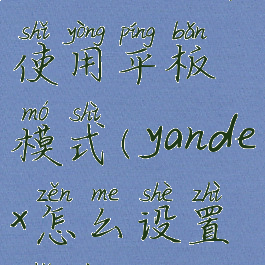 shǐ yòng píng bǎn
使用平板
mó shì
模式(yande
zěn me shè zhì
x怎么设置